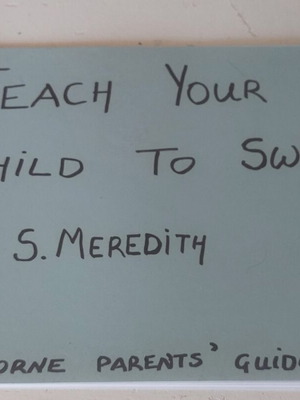 TEACH YOUR
HILD TO SW
S. MEREDITH
ORNE PARENTS' GUID